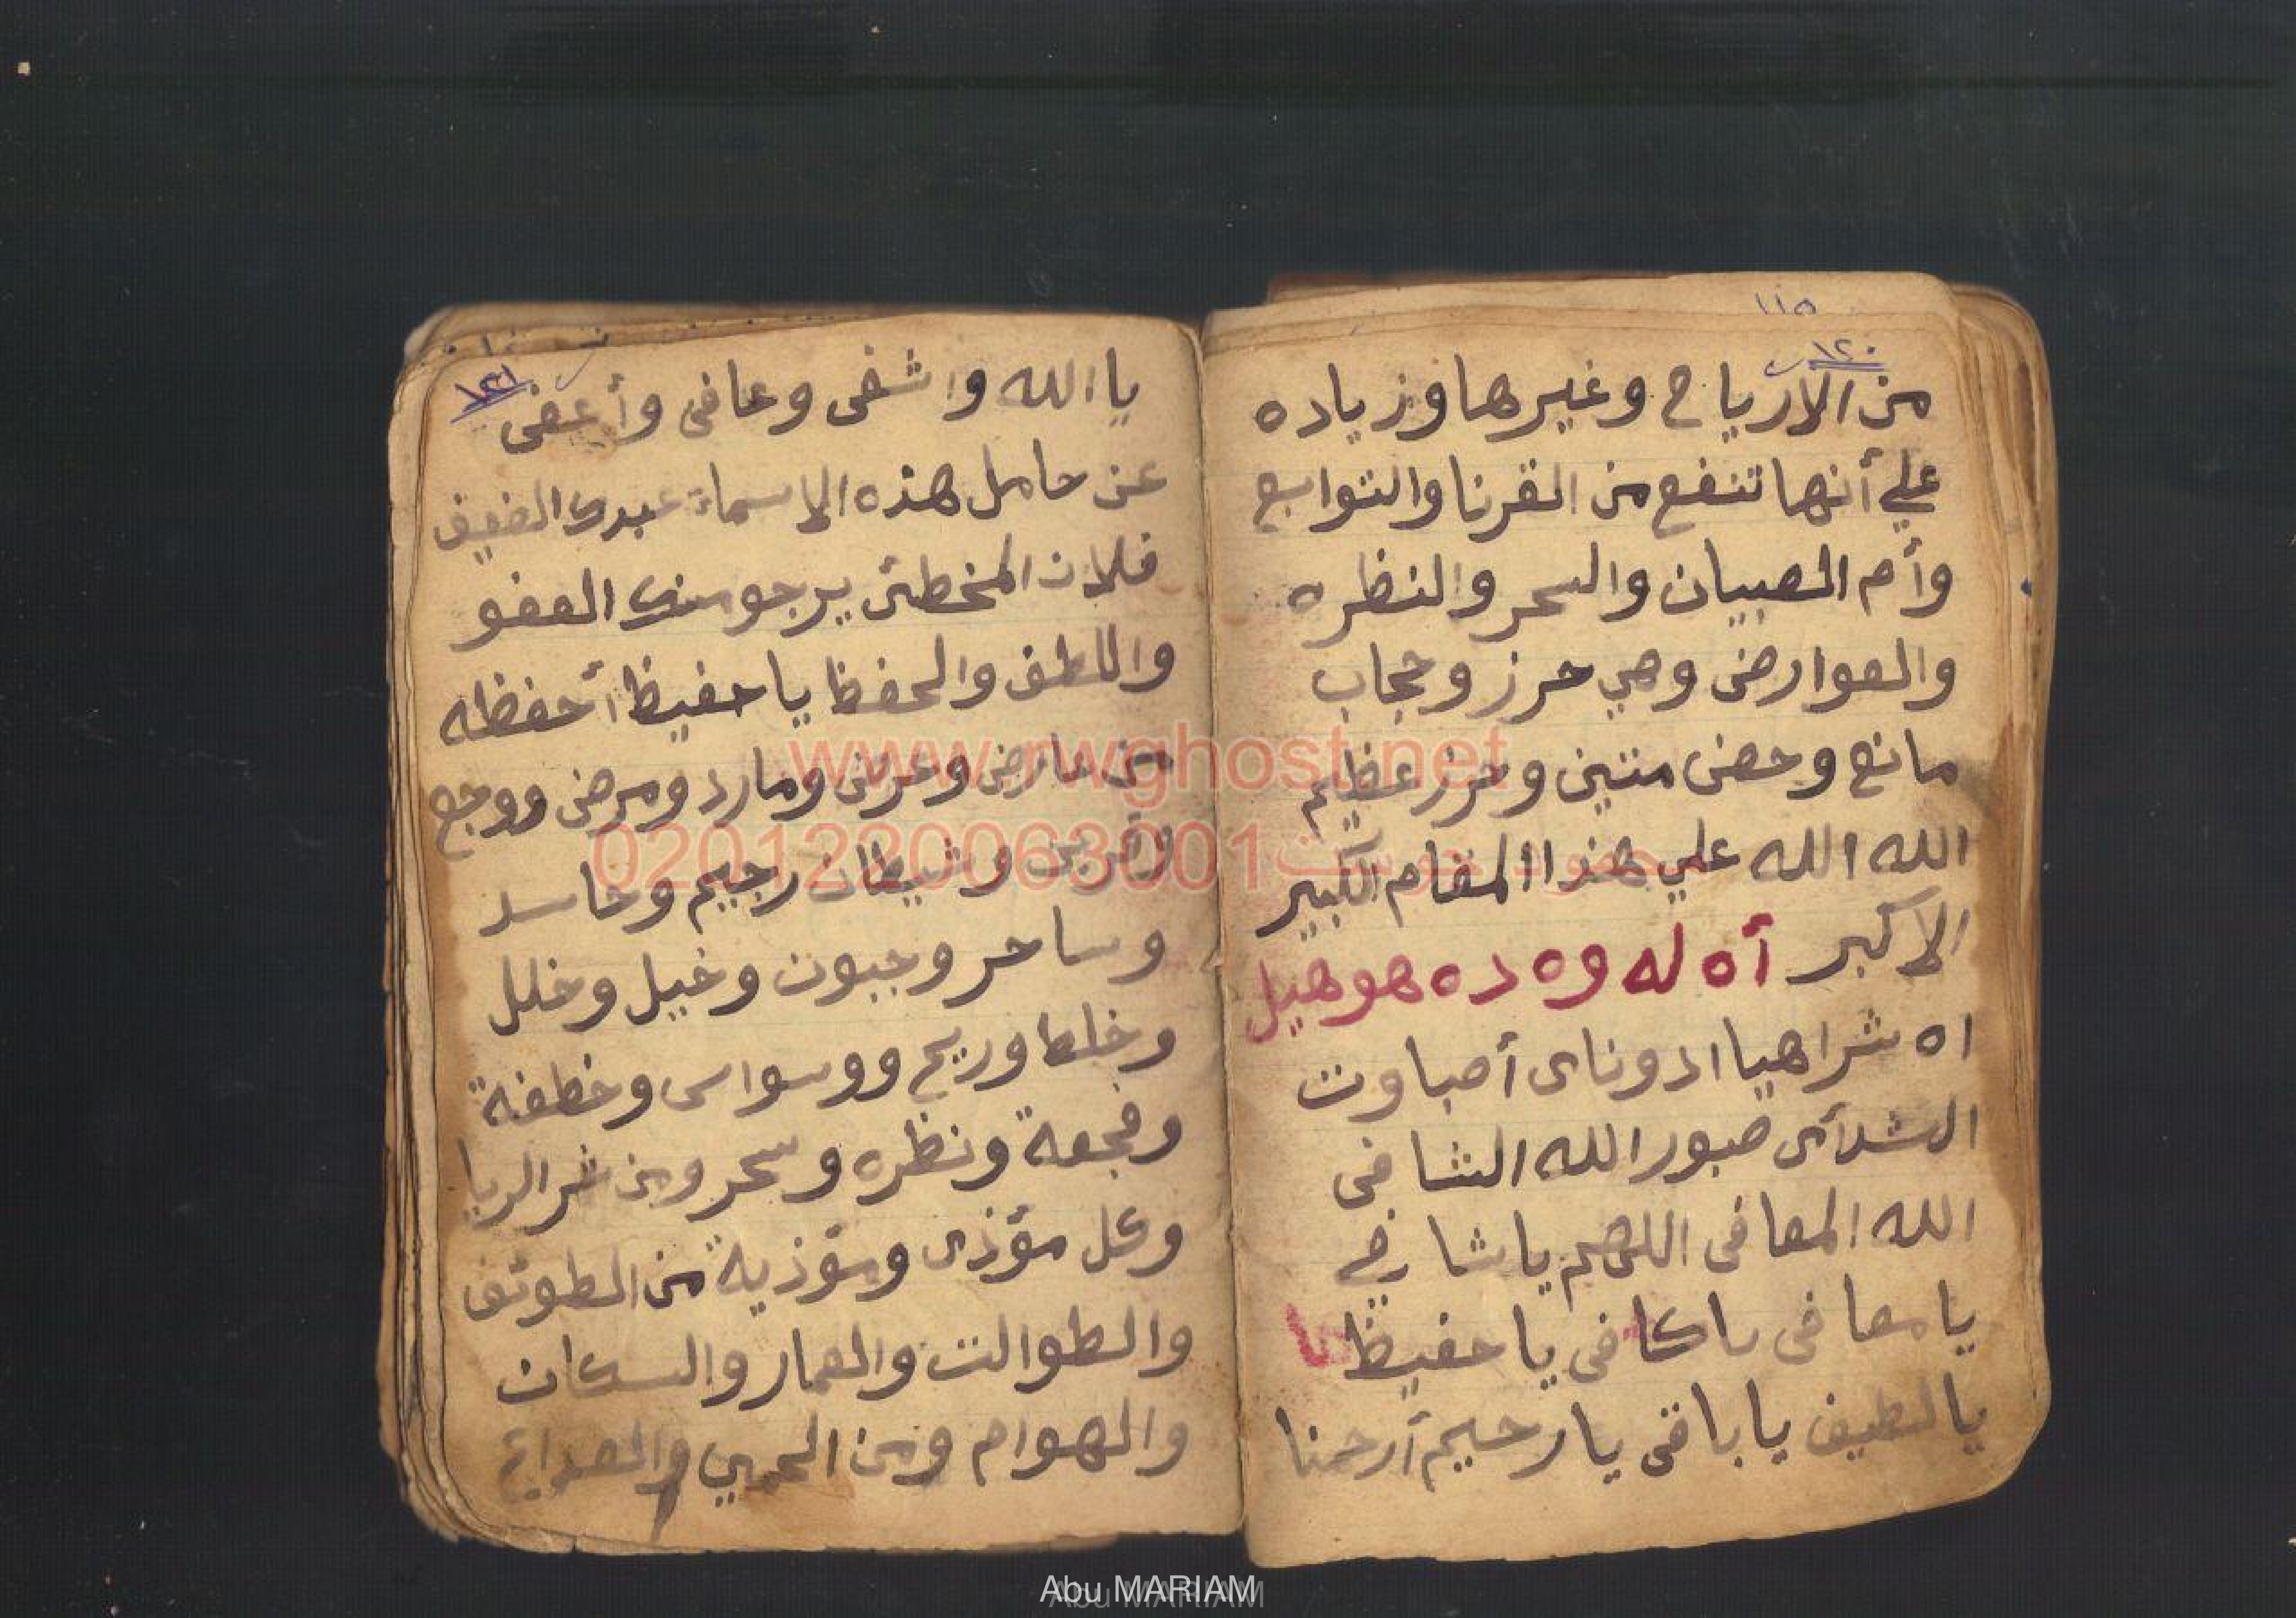 ١١٥
١٢٠
من الارياح وغيرها وزياده
علي أنها تنفع من القرنا والتوابع
وأم الصبيان والسحر والنظره
والعوارض وهي حرز وحجاب
مانع وحصن متين وحرز عظيم
الله الله علي هذا المقام الكبير
الاكبر أه له وه ده هو هيل
اه شراهيا ادوناى أصباوت
الشدآى صبور الله الشافى
الله المعافى اللهم ياشافي
يا معافى ياكافى يا حفيظ
يالطيف يا باقى يارحيم أرحمنا
١٢١
يا الله واشفى وعافى وأعفى
عن حامل هذه الاسماء عبدك الضعيف
فلان المخطئ يرجو منك العفو
واللطف والحفظ ياحفيظ أحفظه
من عارض وعرض ومارد ومرض ووجع
وقرين وشيطان رجيم وحاسد
وساحر وجنون وخبل وخلل
وخلط وريح ووسواس وخطفة
وفجعة ونظره وسحر ومن شر الريا
وكل مؤذى ومؤذية من الطوئف
والطوالت والعمار والسكان
والهوام ومن الحمي والصداع
www.rwghost.net
0201220063001
Abu MARIAM